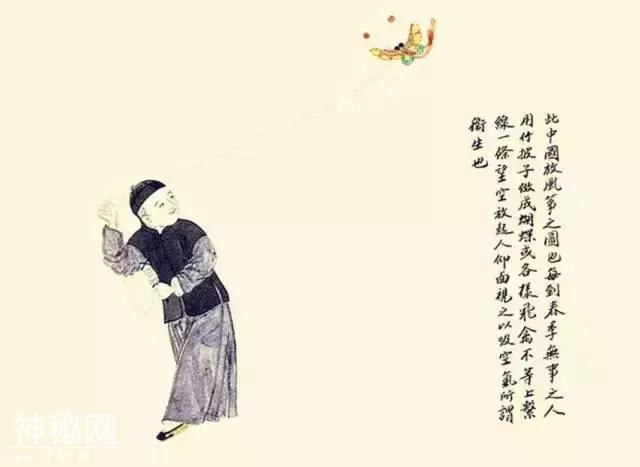 此中國放風箏之圖也每到春季無事之人
用竹披子做成蝴蝶或各樣飛禽不等上繫
線一條望空放起人仰面視之以吸空氣所謂
衛生也
神秘网